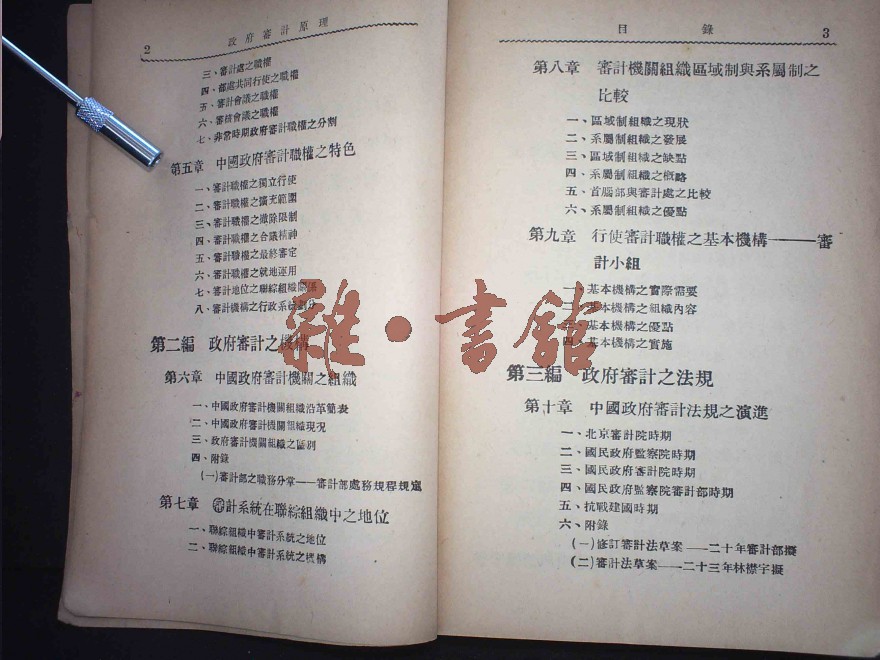 2
政府審計原理
三、審計處之職權
四、部處共同行使之職權
五、審計會議之職權
六、審核會議之職權
七、非常時期政府審計職權之分割
第五章 中國政府審計職權之特色
一、審計職權之獨立行使
二、審計職權之擴充範圍
三、審計職權之撤除限制
四、審計職權之合議精神
五、審計職權之最終審定
六、審計職權之就地運用
七、審計地位之聯綜組織關係
八、審計機構之行政系統劃分
第二編 政府審計之機構
第六章 中國政府審計機關之組織
一、中國政府審計機關組織沿革簡表
二、中國政府審計機關組織現况
三、政府審計機關組織之區別
四、附錄
(一)審計部之職務分掌——審計部處務規程規定
第七章 審計系統在聯綜組織中之地位
一、聯綜組織中審計系統之地位
二、聯綜組織中審計系統之機構
目錄
3
第八章 審計機關組織區域制與系屬制之
比較
一、區域制組織之現狀
二、系屬制組織之發展
三、區域制組織之缺點
四、系屬制組織之概略
五、首腦部與審計處之比較
六、系屬制組織之優點
第九章 行使審計職權之基本機構——審
計小組
一、基本機構之實際需要
二、基本機構之組織內容
三、基本機構之優點
四、基本機構之實施
第三編 政府審計之法規
第十章 中國政府審計法規之演進
一、北京審計院時期
二、國民政府監察院時期
三、國民政府審計院時期
四、國民政府監察院審計部時期
五、抗戰建國時期
六、附錄
(一)修訂審計法草案——二十年審計部擬
(二)審計法草案——二十三年林襟宇擬
雜·書館